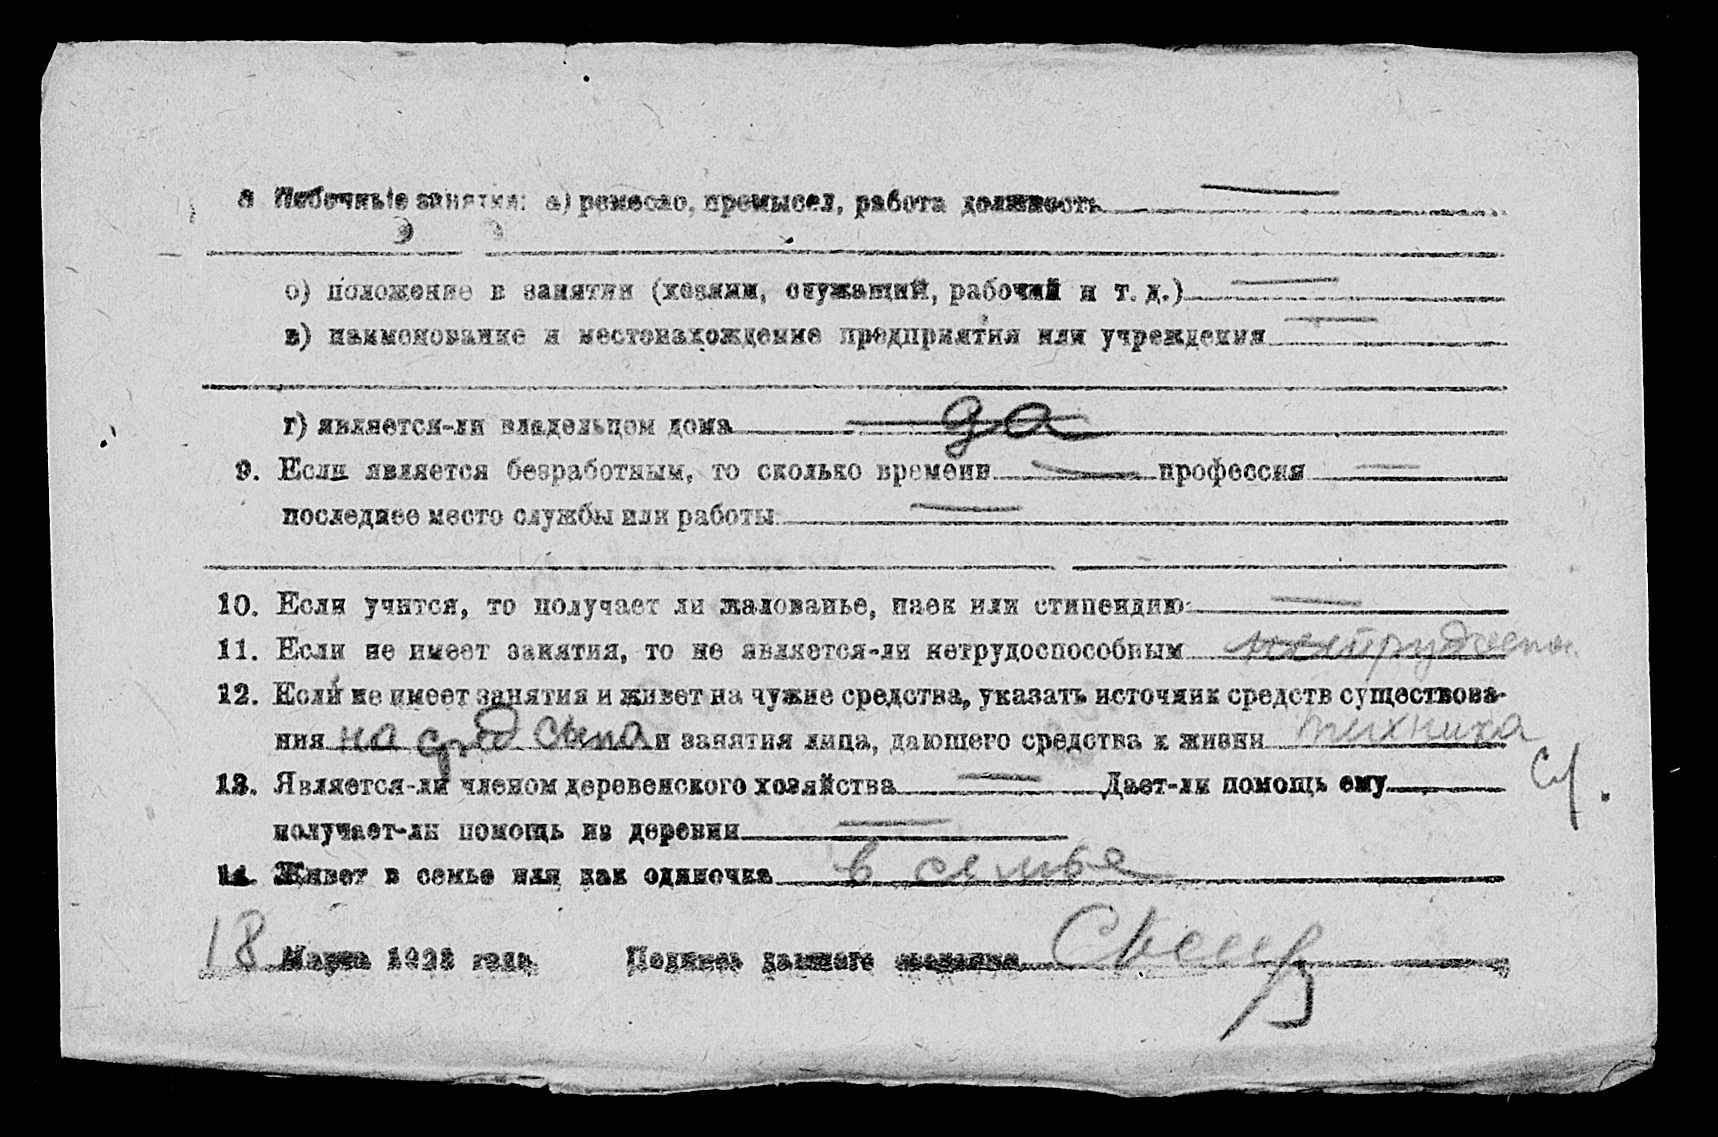 8 Побочные занятия: а) ремесло, промысел, работа должность —
о) положение в занятии (хозяин, служащий, рабочий и т. д.) —
в) наименование и местонахождение предприятия или учреждения —
г) является-ли владельцем дома да
9. Если является безработным, то сколько времени — профессия —
последнее место службы или работы —
10. Если учится, то получает ли жалованье, паек или стипендию: —
11. Если не имеет занятия, то не является-ли нетрудоспособным нетрудоспос.
12. Если не имеет занятия и живет на чужие средства, указать источник средств существова-
ния на сред сына и занятия лица, дающего средства к жизни техника
13. Является-ли членом деревенского хозяйства — Дает-ли помощь ему
получает-ли помощь из деревни —
14. Живет в семье или как одиночка в семье
18 Марта 1923 года Подпись давшего сведения